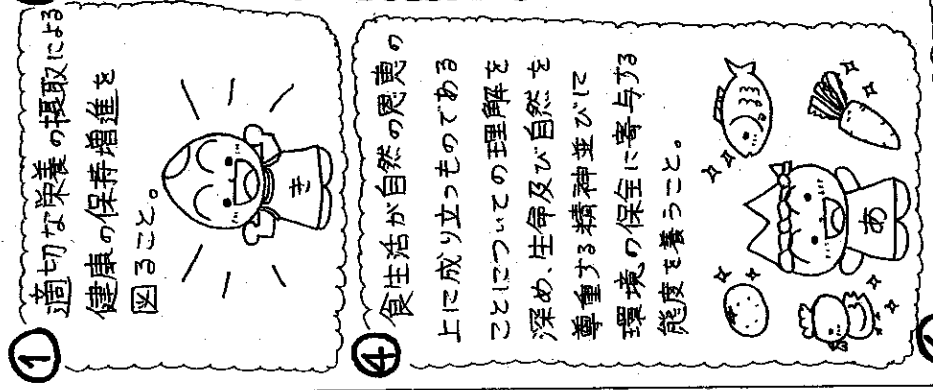 ①
適切な栄養の摂取による
健康の保持増進を
図ること。
き
④
食生活が自然の恩恵の
上に成り立つものである
ことについての理解を
深め、生命及び自然を
尊重する精神並びに
環境の保全に寄与する
態度を養うこと。
あ